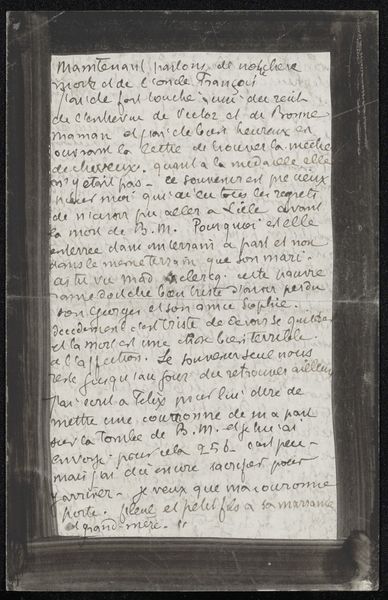 Maintenant parlons de nos chers
morts et de l'oncle François
J'ai été fort touché aussi du récit
de l'entrevue de Victor et de Bonne
maman et j'ai été bien heureux en
ouvrant la lettre de trouver la mèche
de cheveux. quant à la médaille elle
n'y était pas – ce souvenir est précieux
pour moi qui ai eu tous les regrets
de n'avoir pu aller à Lille avant
la mort de B.M. Pourquoi est elle
enterrée dans un terrain à part et non
dans le même terrain que son mari –
as tu vu Mad clercq. cette pauvre
dame doit être bien triste d'avoir perdu
son Georges et son amie Sophie.
décidement c'est triste de devoir se quitter
et la mort est une chose bien terrible
à l'affection. Le souvenir seul nous
reste jusqu'au jour du retrouver ailleurs
J'ai écrit à Félix pour lui dire de
mettre une couronne de ma part
sur la tombe de B.M. et je lui ai
envoyé pour cela 25 f. – c'est peu –
mais j'ai dû encore sacrifier pour
y arriver – je veux que ma couronne
porte. filleul et petit fils à sa marraine
et grand-mère. "